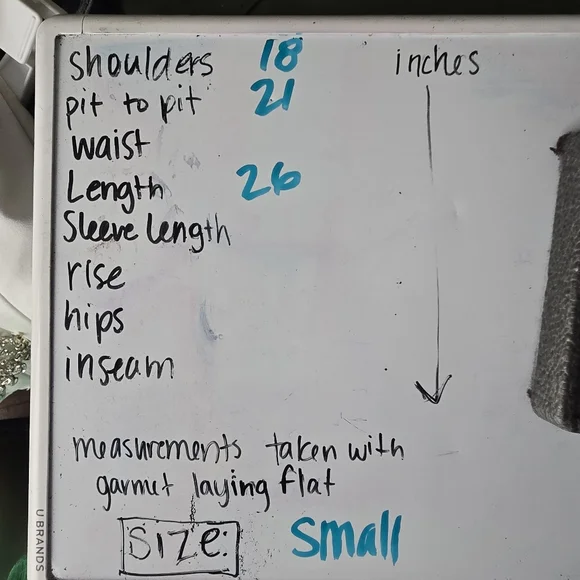 shoulders 18 inches
pit to pit 21
waist
Length 26
Sleeve length
rise
hips
inseam
measurements taken with
garmet laying flat
SIZE: Small
U BRANDS